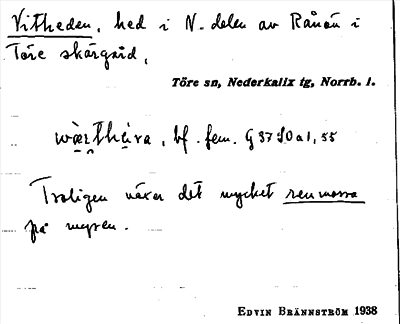 Vitheden, hed i N. delen av Rånön i
Töre skärgård,
Töre sn, Nederkalix tg, Norrb. l.
bf. fem. G 37
Troligen växer det mycket renmossa
på myren.
EDVIN BRÄNNSTRÖM 1938